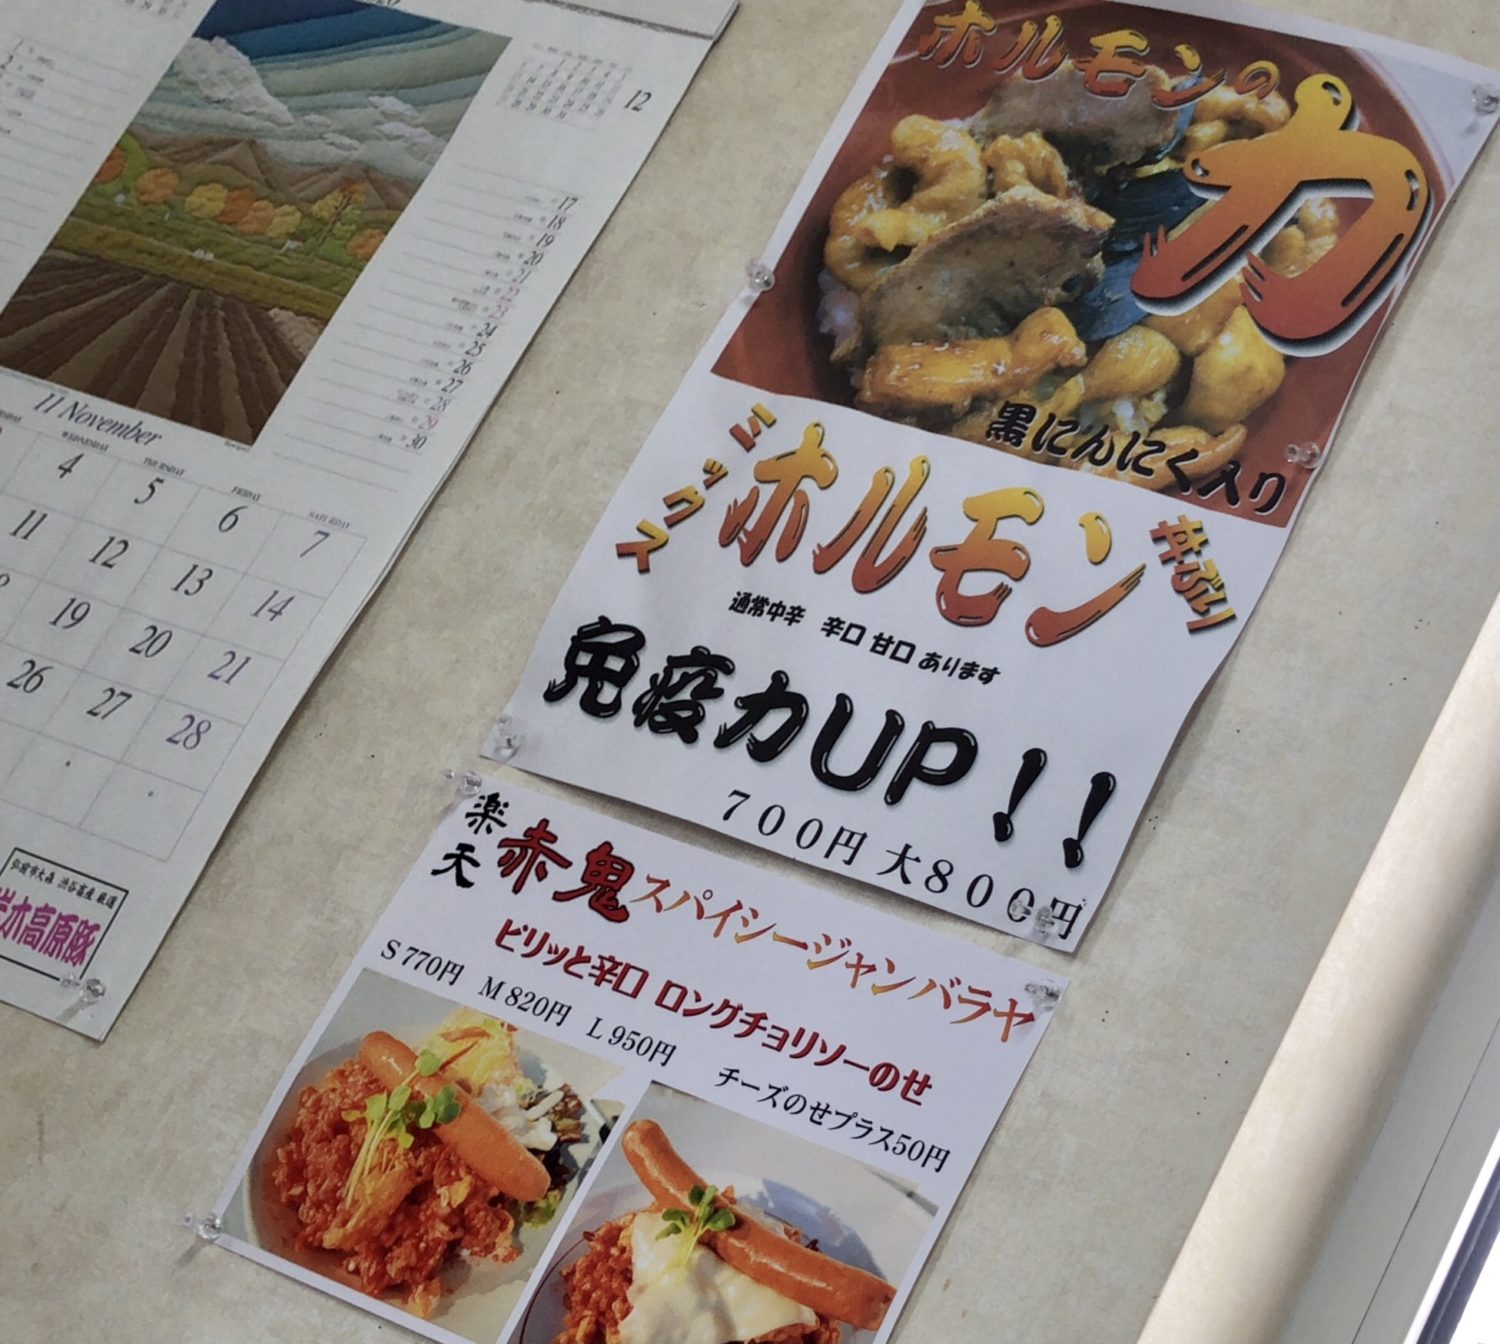 12
17
18
19
20
21
22
23
24
25
26
27
28
29
30
11 November
WEDNESDAY THURSDAY FRIDAY SATURDAY
4 5 6 7
11 12 13 14
19 20 21
26 27 28
弘前市大森 渋谷畜産 厳選
岩木高原豚
ホルモンの
力
黒にんにく入り
ミックス
ホルモン
丼ぶり
通常中辛 辛口 甘口 あります
免疫力UP！！
７００円 大８００円
楽天
赤鬼スパイシージャンバラヤ
ピリッと辛口 ロングチョリソーのせ
S 770円 M 820円 L 950円
チーズのせプラス50円